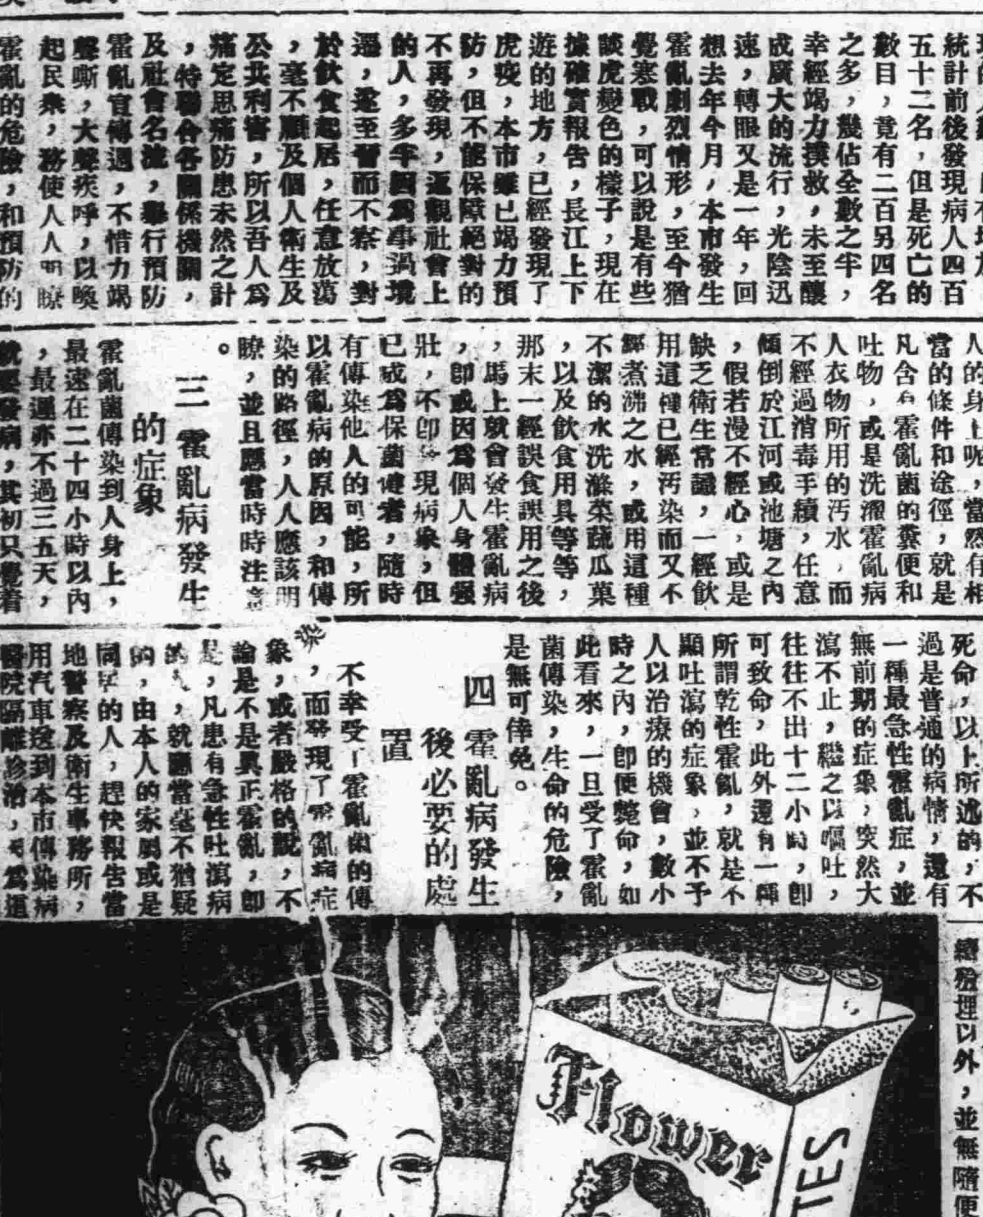 統計前後發現病人四百
五十二名,但是死亡的
數目,竟有二百另四名
之多,幾佔全數之半,
幸經竭力撲救,未至釀
成廣大的流行,光陰迅
速,轉眼又是一年,回
想去年今月,本市發生
霍亂劇烈情形,至今猶
覺寒戰,可以說是有些
談虎變色的樣子,現在
據確實報告,長江上下
遊的地方,已經發現了
虎疫,本市雖已竭力預
防,但不能保障絕對的
不再發現,返觀社會上
的人,多半因為事過境
遷,遂至習而不察,對
於飲食起居,任意放蕩
,毫不顧及個人衛生及
公共利害,所以吾人為
痛定思痛防患未然之計
,特聯合各關係機關,
及社會名流,舉行預防
霍亂宣傳週,不惜力竭
聲嘶,大聲疾呼,以喚
起民眾,務使人人明瞭
霍亂的危險,和預防的
人的身上呢,當然有相
當的條件和途徑,就是
凡含有霍亂菌的糞便和
吐物,或是洗濯霍亂病
人衣物所用的汚水,而
不經過消毒手續,任意
傾倒於江河或池塘之內
,假若漫不經心,或是
缺乏衛生常識,一經飲
用這種已經汚染而又不
經煮沸之水,或用這種
不潔的水洗滌菜蔬瓜菓
,以及飲食用具等等,
那末一經誤食誤用之後
,馬上就會發生霍亂病
,卽或因為個人身體强
壯,不卽發現病象,但
已成為保菌健者,隨時
有傳染他人的可能,所
以霍亂病的原因,和傳
染的路徑,人人應該明
瞭,並且應當時時注意
。
三 霍亂病發生
的症象
霍亂菌傳染到人身上,
最速在二十四小時以內
,最遲亦不過三五天,
就要發病,其初只覺着
死命,以上所述的,不
過是普通的病情,還有
一種最急性霍亂症,並
無前期的症象,突然大
瀉不止,繼之以嘔吐,
往往不出十二小時,卽
可致命,此外還有一種
所謂乾性霍亂,就是不
顯吐瀉的症象,並不予
人以治療的機會,數小
時之內,卽便斃命,如
此看來,一旦受了霍亂
菌傳染,生命的危險,
是無可倖免。
四 霍亂病發生
後必要的處
置
不幸受了霍亂菌的傳
染,而發現了霍亂病症
象,或者嚴格的說,不
論是不是眞正霍亂,卽
是,凡患有急性吐瀉病
的,就應當毫不猶疑
的,由本人的家屬或是
同居的人,趕快報告當
地警察及衛生事務所,
用汽車送到本市傳染病
醫院隔離診治,
殮埋以外,並無隨便
Flower
TES